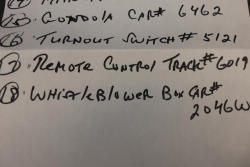 (15) GONDOLA CAR# 6462
(16) TURNOUT SWITCH# 5121
(17) REMOTE CONTROL TRACK# 6019
(18) WHISTLEBLOWER BOX CAR#
2046W